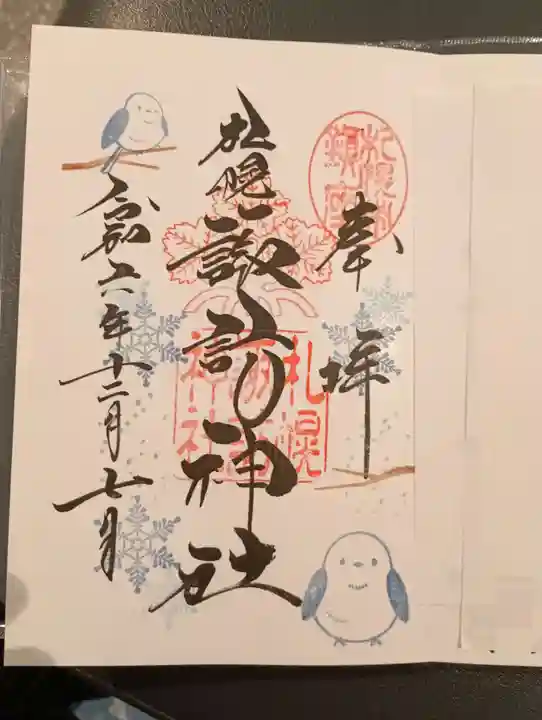 奉拝
札幌諏訪神社
令和六年十二月七日
札幌鎮座
札幌諏訪神社